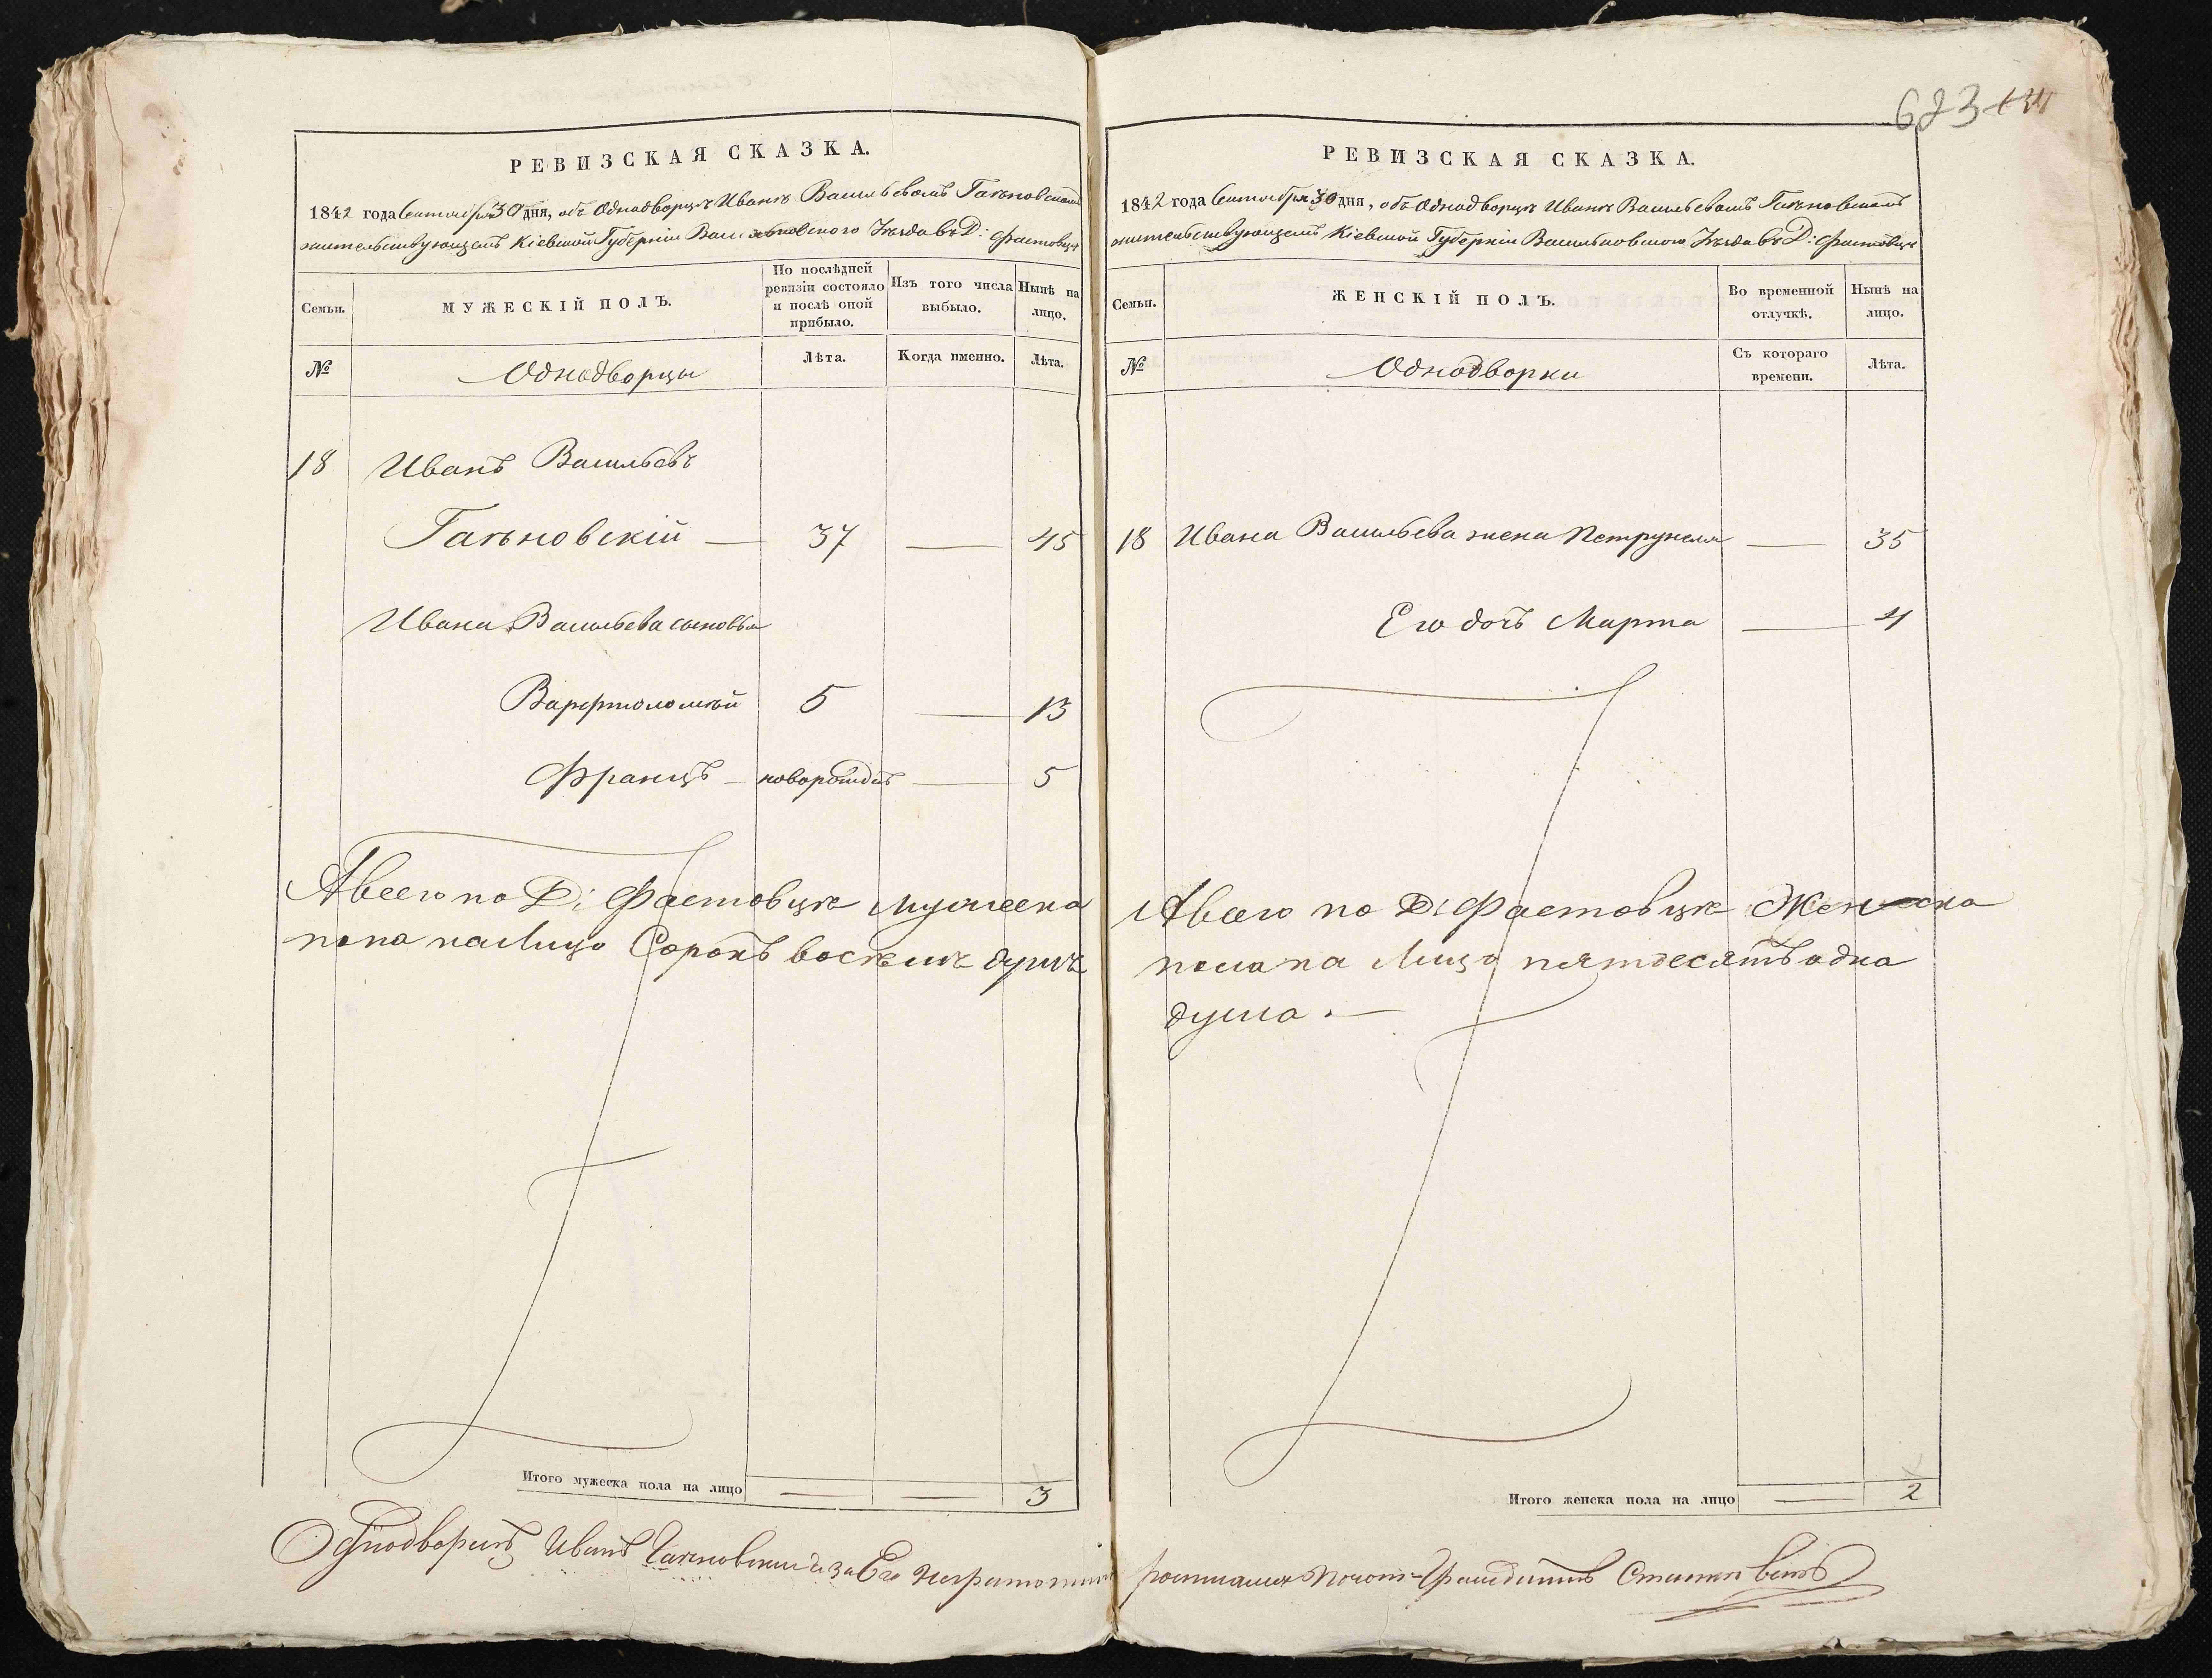 623
РЕВИЗСКАЯ СКАЗКА.
1842 года Сентября 30 дня, объ Однодворцѣ Иванѣ Васильевомъ Гатьновскомъ
жительствующемъ Кіевской Губерніи Васильковского Уѣзда въ Д: Фастовцѣ
Семьи.
МУЖЕСКІЙ ПОЛЪ.
По послѣдней ревизіи состояло и послѣ оной прибыло.
Изъ того числа выбыло.
Нынѣ на лицо.
№
Однодворцы
Лѣта.
Когда именно.
Лѣта.
18 Иванъ Васильевъ
Гатьновскій — 37 — 45
Ивана Васильева сыновья
Варфтоломѣй 5 — 13
Францъ — новорожденъ — 5
А всего по Д: Фастовцѣ мужеска
пола на Лицо Сорокъ восѣмъ душъ
Итого мужеска пола на лицо — — 3
РЕВИЗСКАЯ СКАЗКА.
1842 года Сентября 30 дня, объ Однодворцѣ Иванѣ Васильевомъ Гатьновскомъ
жительствующемъ Кіевской Губерніи Васильковского Уѣзда въ Д: Фастовцѣ
Семьи.
ЖЕНСКІЙ ПОЛЪ.
Во временной отлучкѣ.
Нынѣ на лицо.
№
Однодворки
Съ котораго времени.
Лѣта.
18 Ивана Васильева жена Петрунеля — 35
Его дочь Марта — 4
А всего по Д: Фастовцѣ Женска
пола на Лицо пятдесятъ одна
душа. —
Итого женска пола на лицо — 2
Однодворецъ Иванъ а за Его